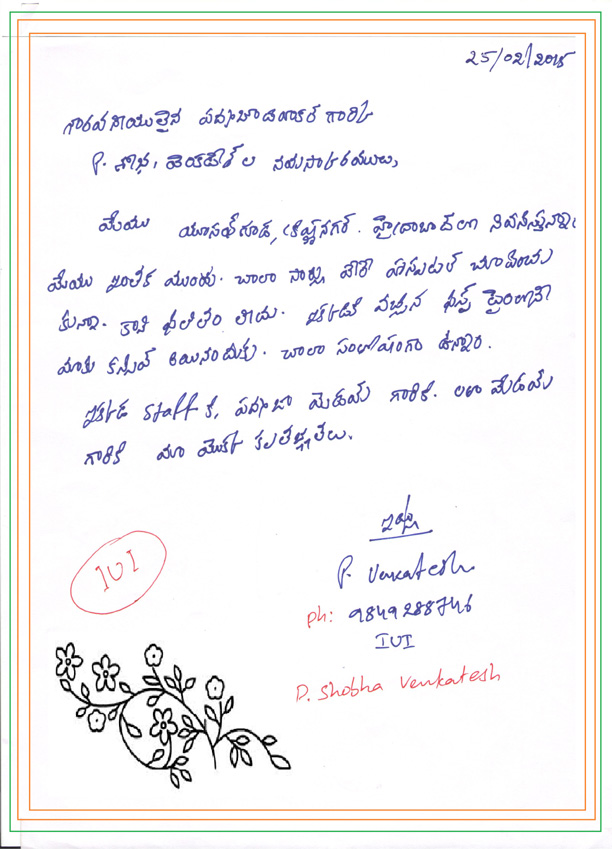 25/02/2018
గౌరవనీయులైన పద్మజా దివాకర్ గారికి
P. శోభ, వెంకటేశ్ ల నమస్కారములు,
మేము యూసఫ్‌గూడ, కృష్ణనగర్. హైదరాబాద్‌లో నివసిస్తున్నాం
మేము ఇంతక ముందు. చాలా సార్లు వేరే హాస్పిటల్ చూపించు
కున్నా. కాని ఫలితం లేదు. ఇక్కడికి వచ్చిన ఫస్ట్ టైంలోనే
మాకు కన్సీవ్ అయినందుకు. చాలా సంతోషంగా ఉన్నాం.
ఇక్కడ staff కి, పద్మజా మేడమ్ గారికి. లతా మేడమ్
గారికి మా యొక్క కృతజ్ఞతలు.
ఇట్లు
P. Venkatesh
Ph: 9849288746
IUI
IUI
D. Shobha Venkatesh